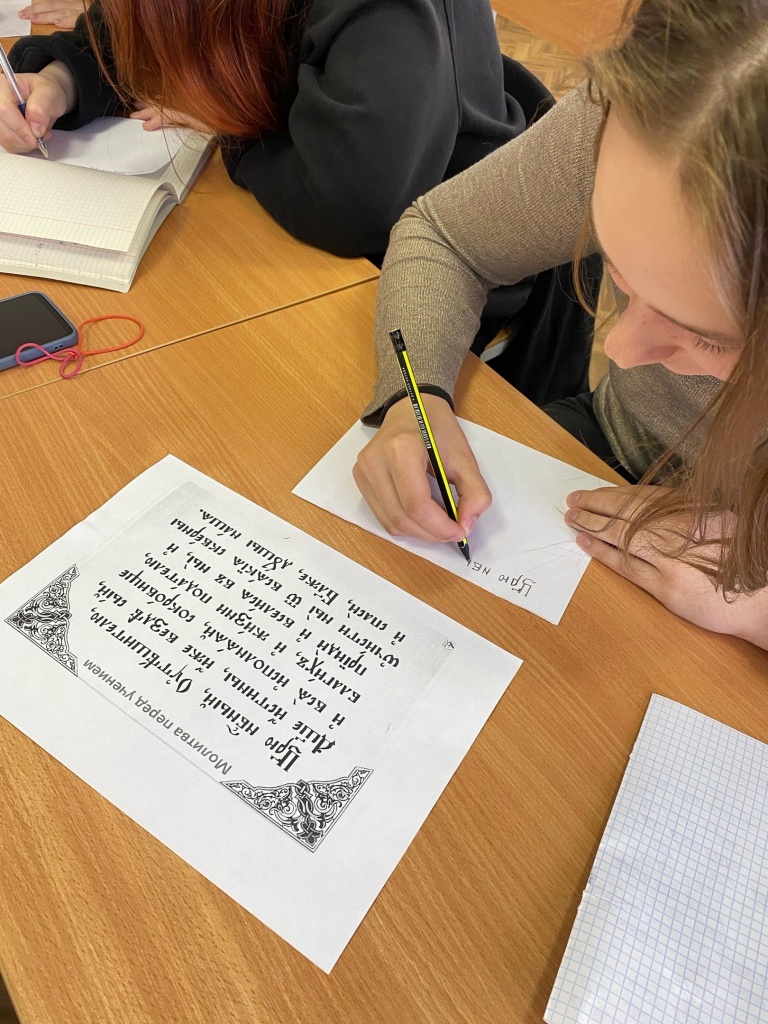 Молитва перед учением
Цр҃ю нб҃ный, Оу҆тѣ́шителю,
Дш҃е и҆́стины, и҆́же вездѣ̀ сы́й,
и҆ всѧ̑ и҆сполнѧ́ѧй, сокро́вище
благи́хъ, и҆ жи́зни пода́телю,
прїидѝ и҆ всели́сѧ въ ны̀, и҆
ѡ҆чи́сти ны̀ ѿ всѧ́кїѧ скве́рны
и҆ спасѝ, Бл҃же, дꙋ́шы на́шѧ.
Цр҃ю нб